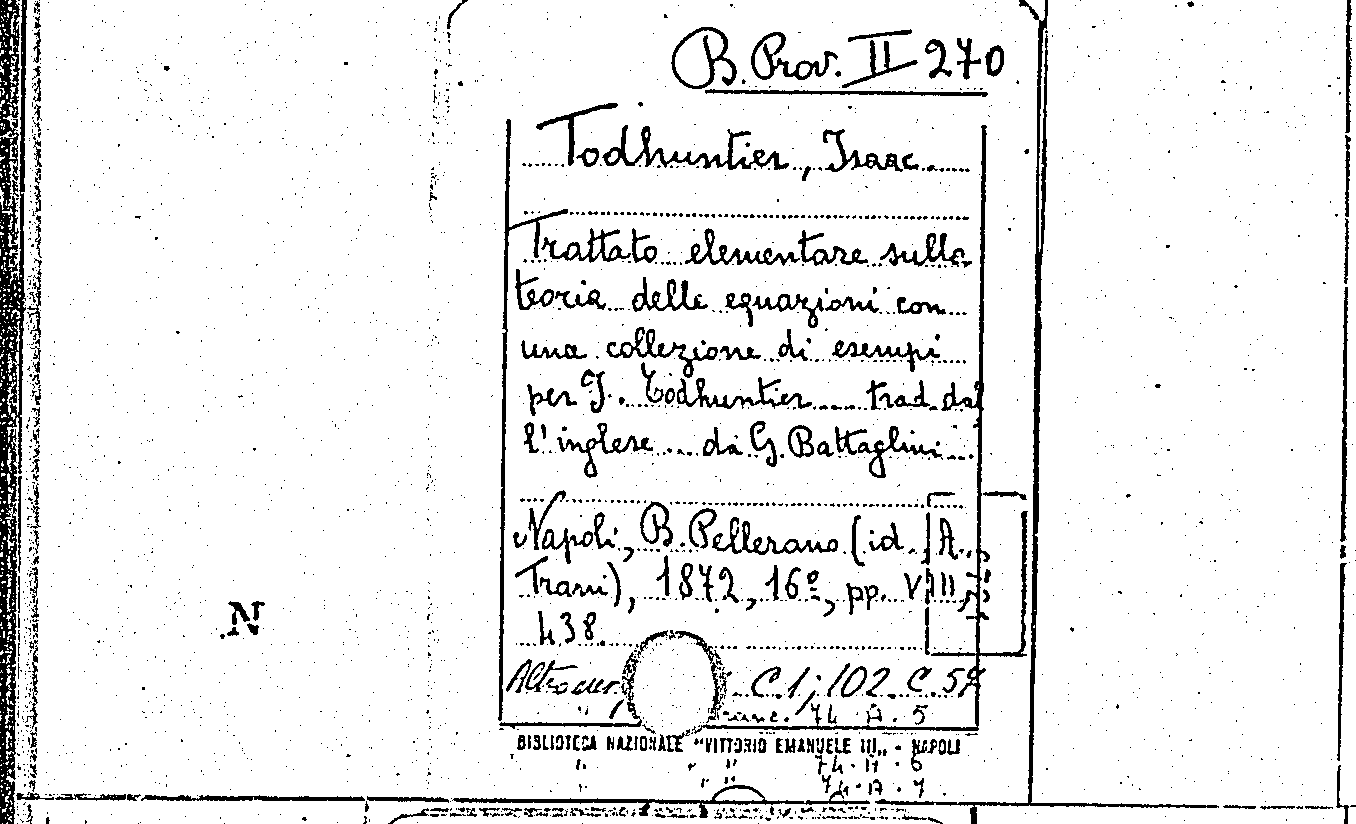 B. Prov. II 270
Todhuntier, Isaac.
Trattato elementare sulla
teoria delle equazioni con
una collezione di esempi
per I. Todhuntier .... trad. dal
l'inglese ... da G. Battaglini ...
Napoli, B. Pellerano (id. A.
Trani), 1872, 16º, pp. VIII,
438.
N
C.1; 102. C. 57
74. A. 5
BIBLIOTECA NAZIONALE "VITTORIO EMANUELE III" - NAPOLI
" " 74. A. 6
" " 74. A. 7